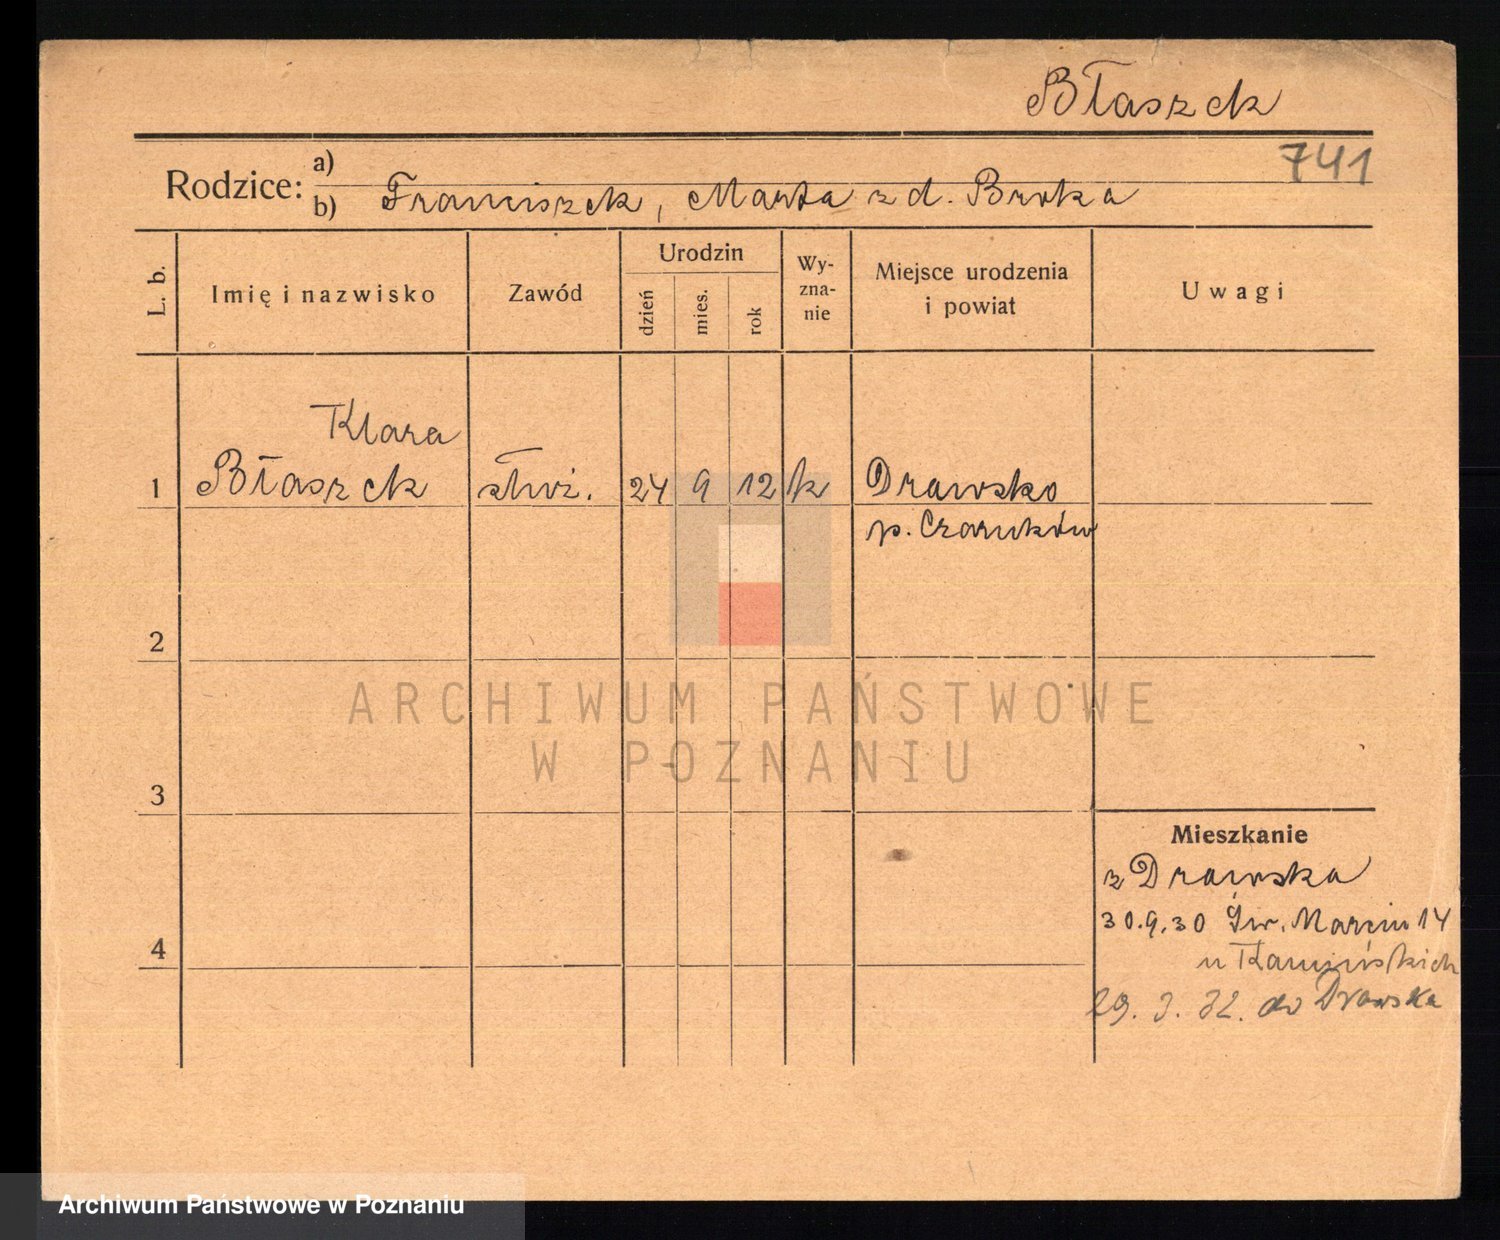 Błaszek
741
Rodzice:
a)
b) Franciszek, Marta z d. Brota
L. b.
Imię i nazwisko
Zawód
Urodzin
dzień
mies.
rok
Wy-
zna-
nie
Miejsce urodzenia
i powiat
Uwagi
Klara
1 Błaszek służ. 24 9 12 k Drawsko
p. Czarnków
2
3
4
ARCHIWUM PAŃSTWOWE
W POZNANIU
Mieszkanie
z Drawska
30.9.30 Św. Marcin 14
u Kamińskich
29. 3. 32. do Drawska
Archiwum Państwowe w Poznaniu